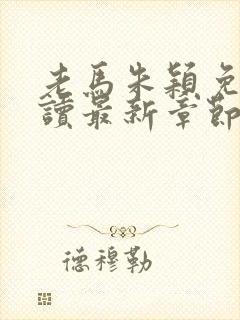 老馬朱穎免
讀最新章節
德穆勒